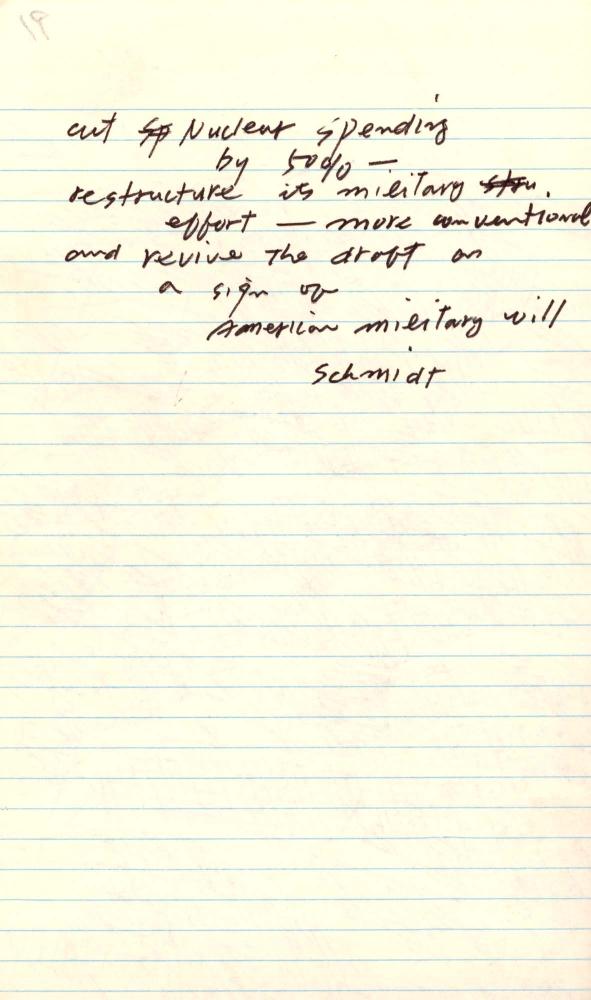 cut Nuclear spending
by 50% —
restructure its military stru.
effort — more conventional
and revive the draft as
a sign of
American military will
Schmidt